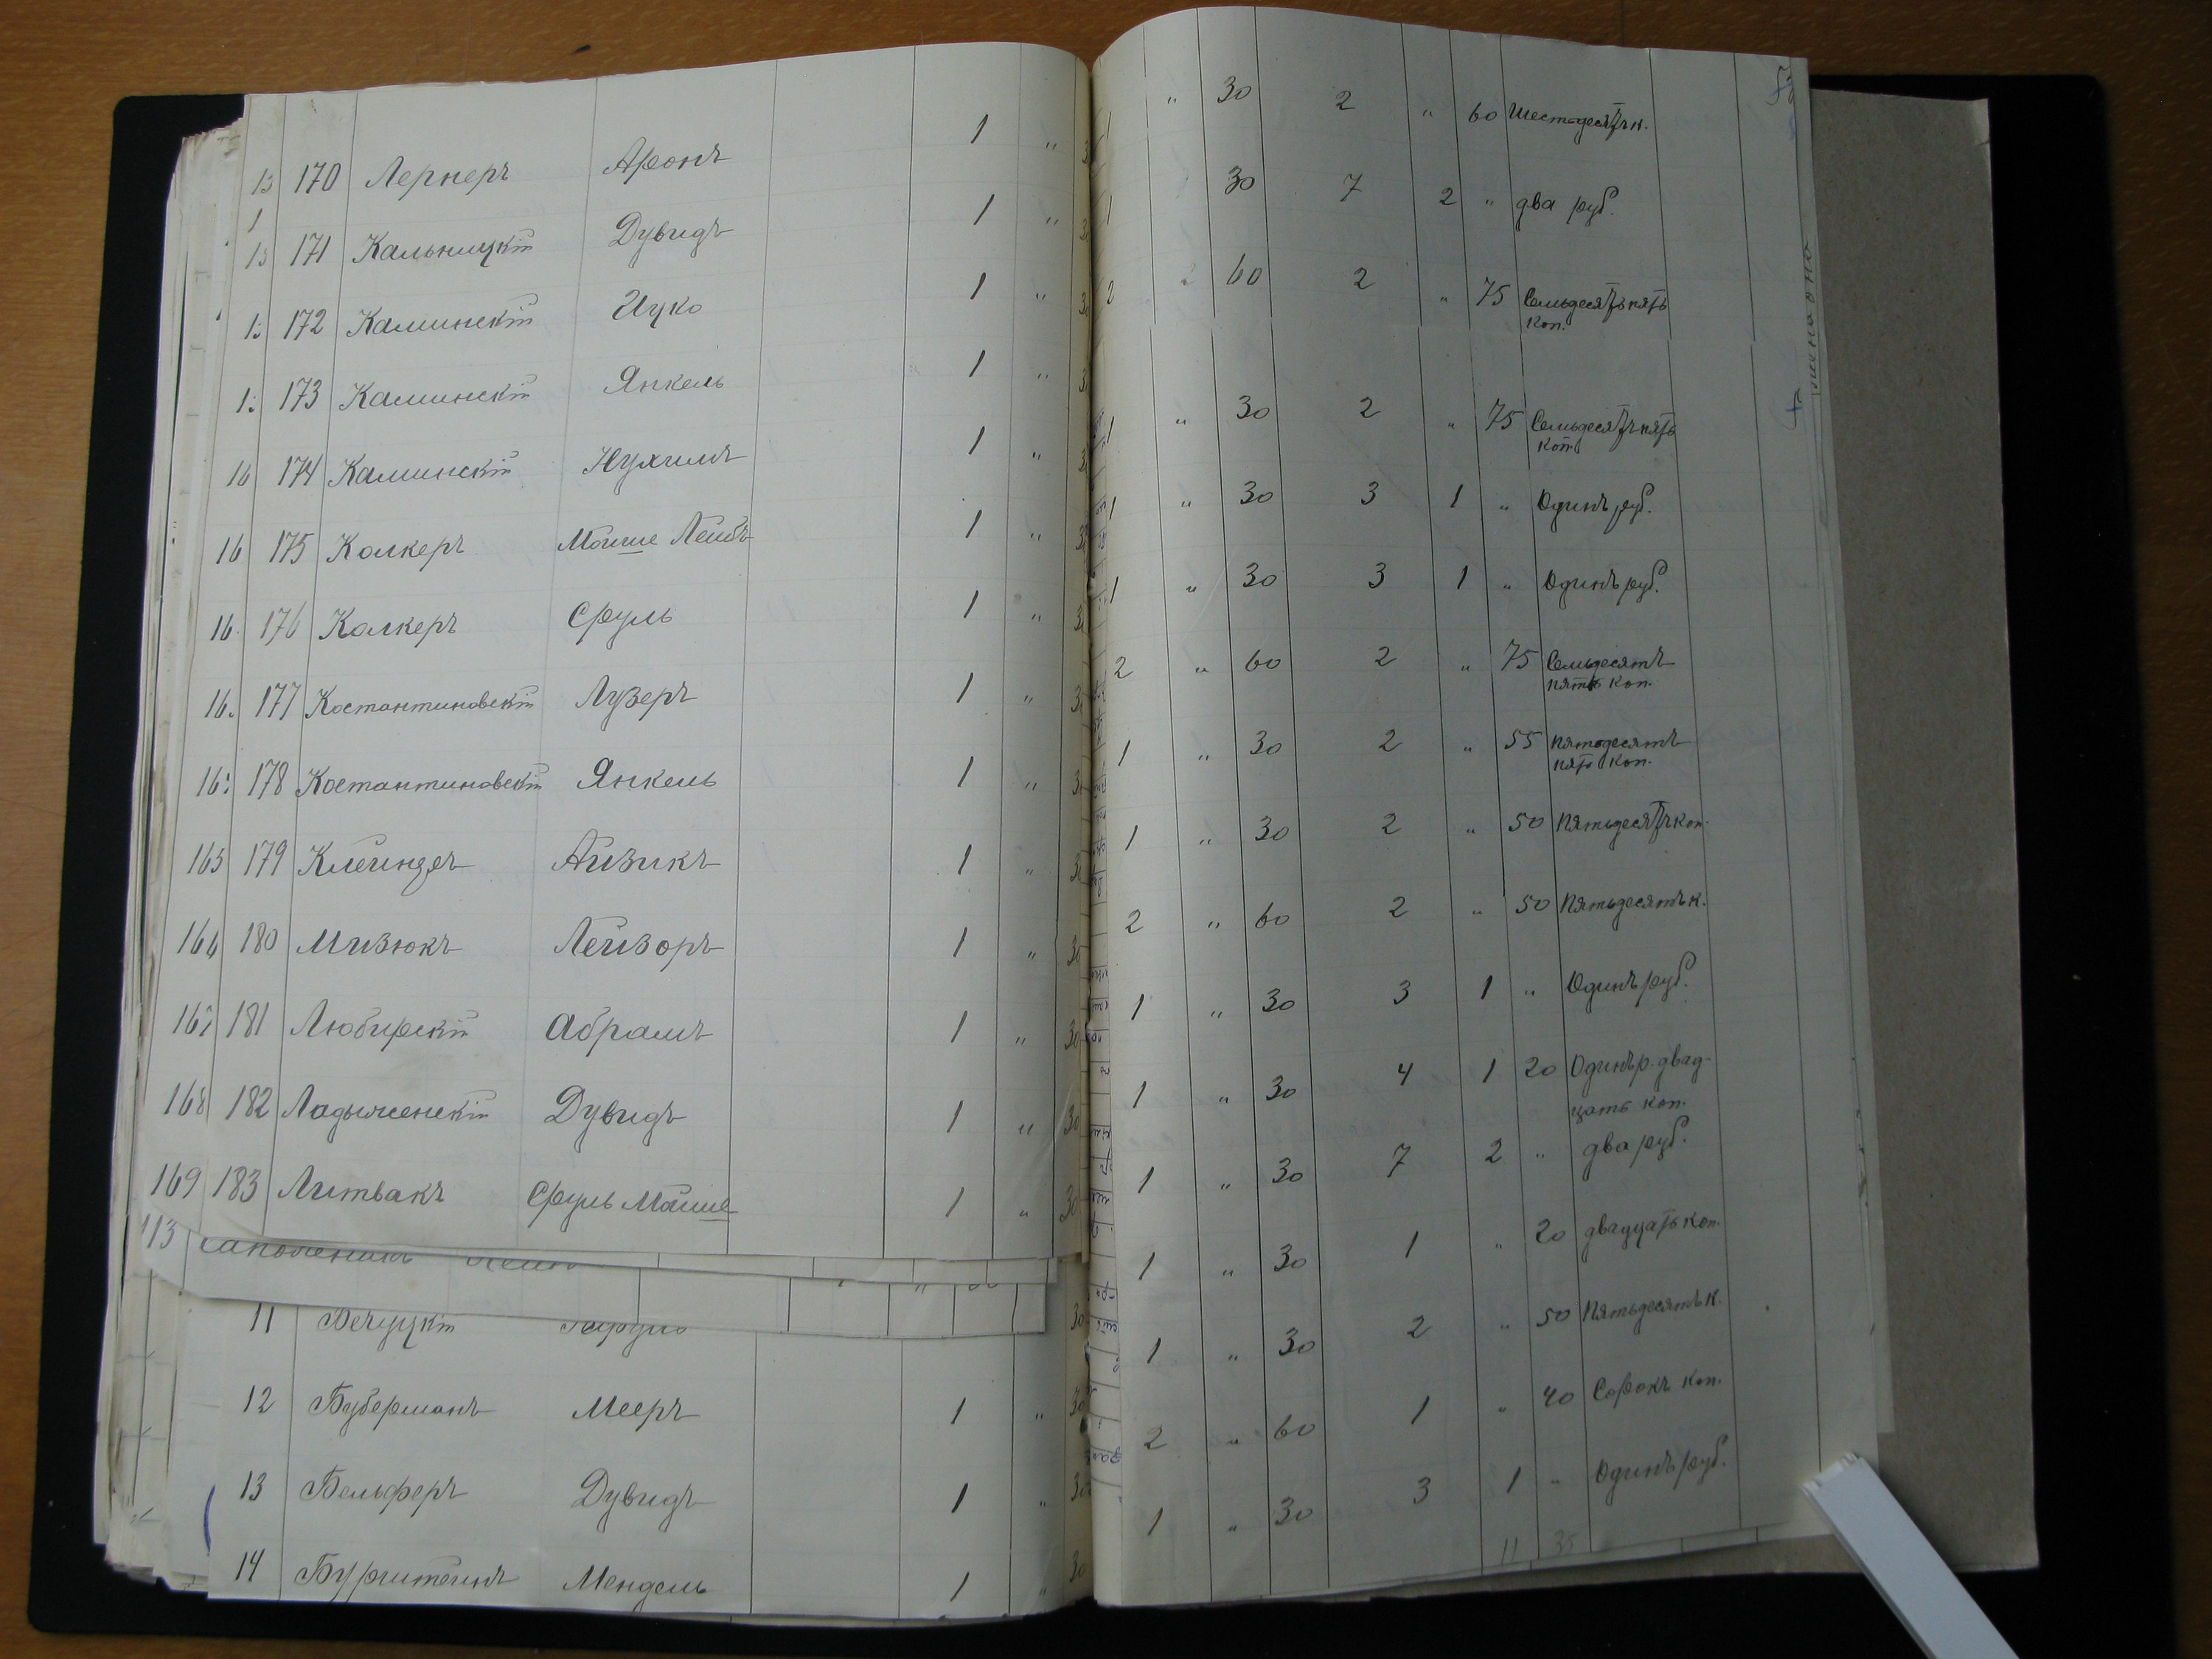 170 Лернеръ Аронъ 1 "
171 Кальницкій Дувидъ 1 "
172 Каминскій Ицко 1 "
173 Каминскій Янкель 1 "
174 Каминскій Нухимъ 1 "
16 175 Колкеръ Мойше Лейбъ 1 "
16 176 Колкеръ Сруль 1 "
16 177 Костантиновскій Лузеръ 1 "
16 178 Костантиновскій Янкель 1 "
165 179 Айзикъ 1 "
166 180 Мизюкъ Лейзоръ 1 " 30
167 181 Любирскій Абрамъ 1 " 30
168 182 Ладыженскій Дувидъ 1 " 30
169 183 Литвакъ Сруль Мойше 1 " 30
113
11 30
12 Буберманъ Мееръ 1 " 30
13 Бельферъ Дувидъ 1 " 30
14 Бурштейнъ Мендель 1 " 30
1 " 30 2 " 60 Шестьдесятъ к.
1 30 7 2 " два руб.
2 60 2 " 75 Семьдесятъ пять
коп.
1 " 30 2 " 75 Семьдесятъ пять
коп
1 " 30 3 1 " Одинъ руб.
1 " 30 3 1 " Одинъ руб.
2 " 60 2 " 75 Семьдесятъ
пять коп.
1 " 30 2 " 55 Пятьдесятъ
пять коп.
1 " 30 2 " 50 Пятьдесятъ коп.
2 " 60 2 " 50 Пятьдесятъ к.
1 " 30 3 1 " Одинъ руб.
1 " 30 4 1 20 Одинъ р. двад-
цать коп.
1 " 30 7 2 " два руб.
1 " 30 1 " 20 двадцать коп.
1 " 30 2 " 50 Пятьдесятъ к.
2 " 60 1 " 40 Сорокъ коп.
1 " 30 3 1 " Одинъ руб.
11 35